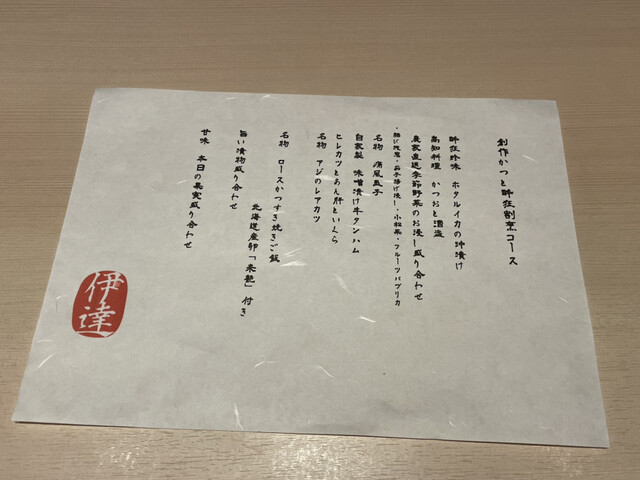 創作かつと酔狂割烹コース
酔狂珍味 ホタルイカの沖漬け
高知料理 かつおと酒盗
農家直送季節野菜のお浸し盛り合わせ
茄子揚げ浸し・小松菜・フルーツパプリカ
名物 痛風玉子
自家製 味噌漬け牛タンハム
ヒレカツとあん肝といくら
名物 アジのレアカツ
名物 ロースかつすき焼きご飯
北海道産卵「米艶」付き
旨い漬物盛り合わせ
甘味 本日の果実盛り合わせ
伊達